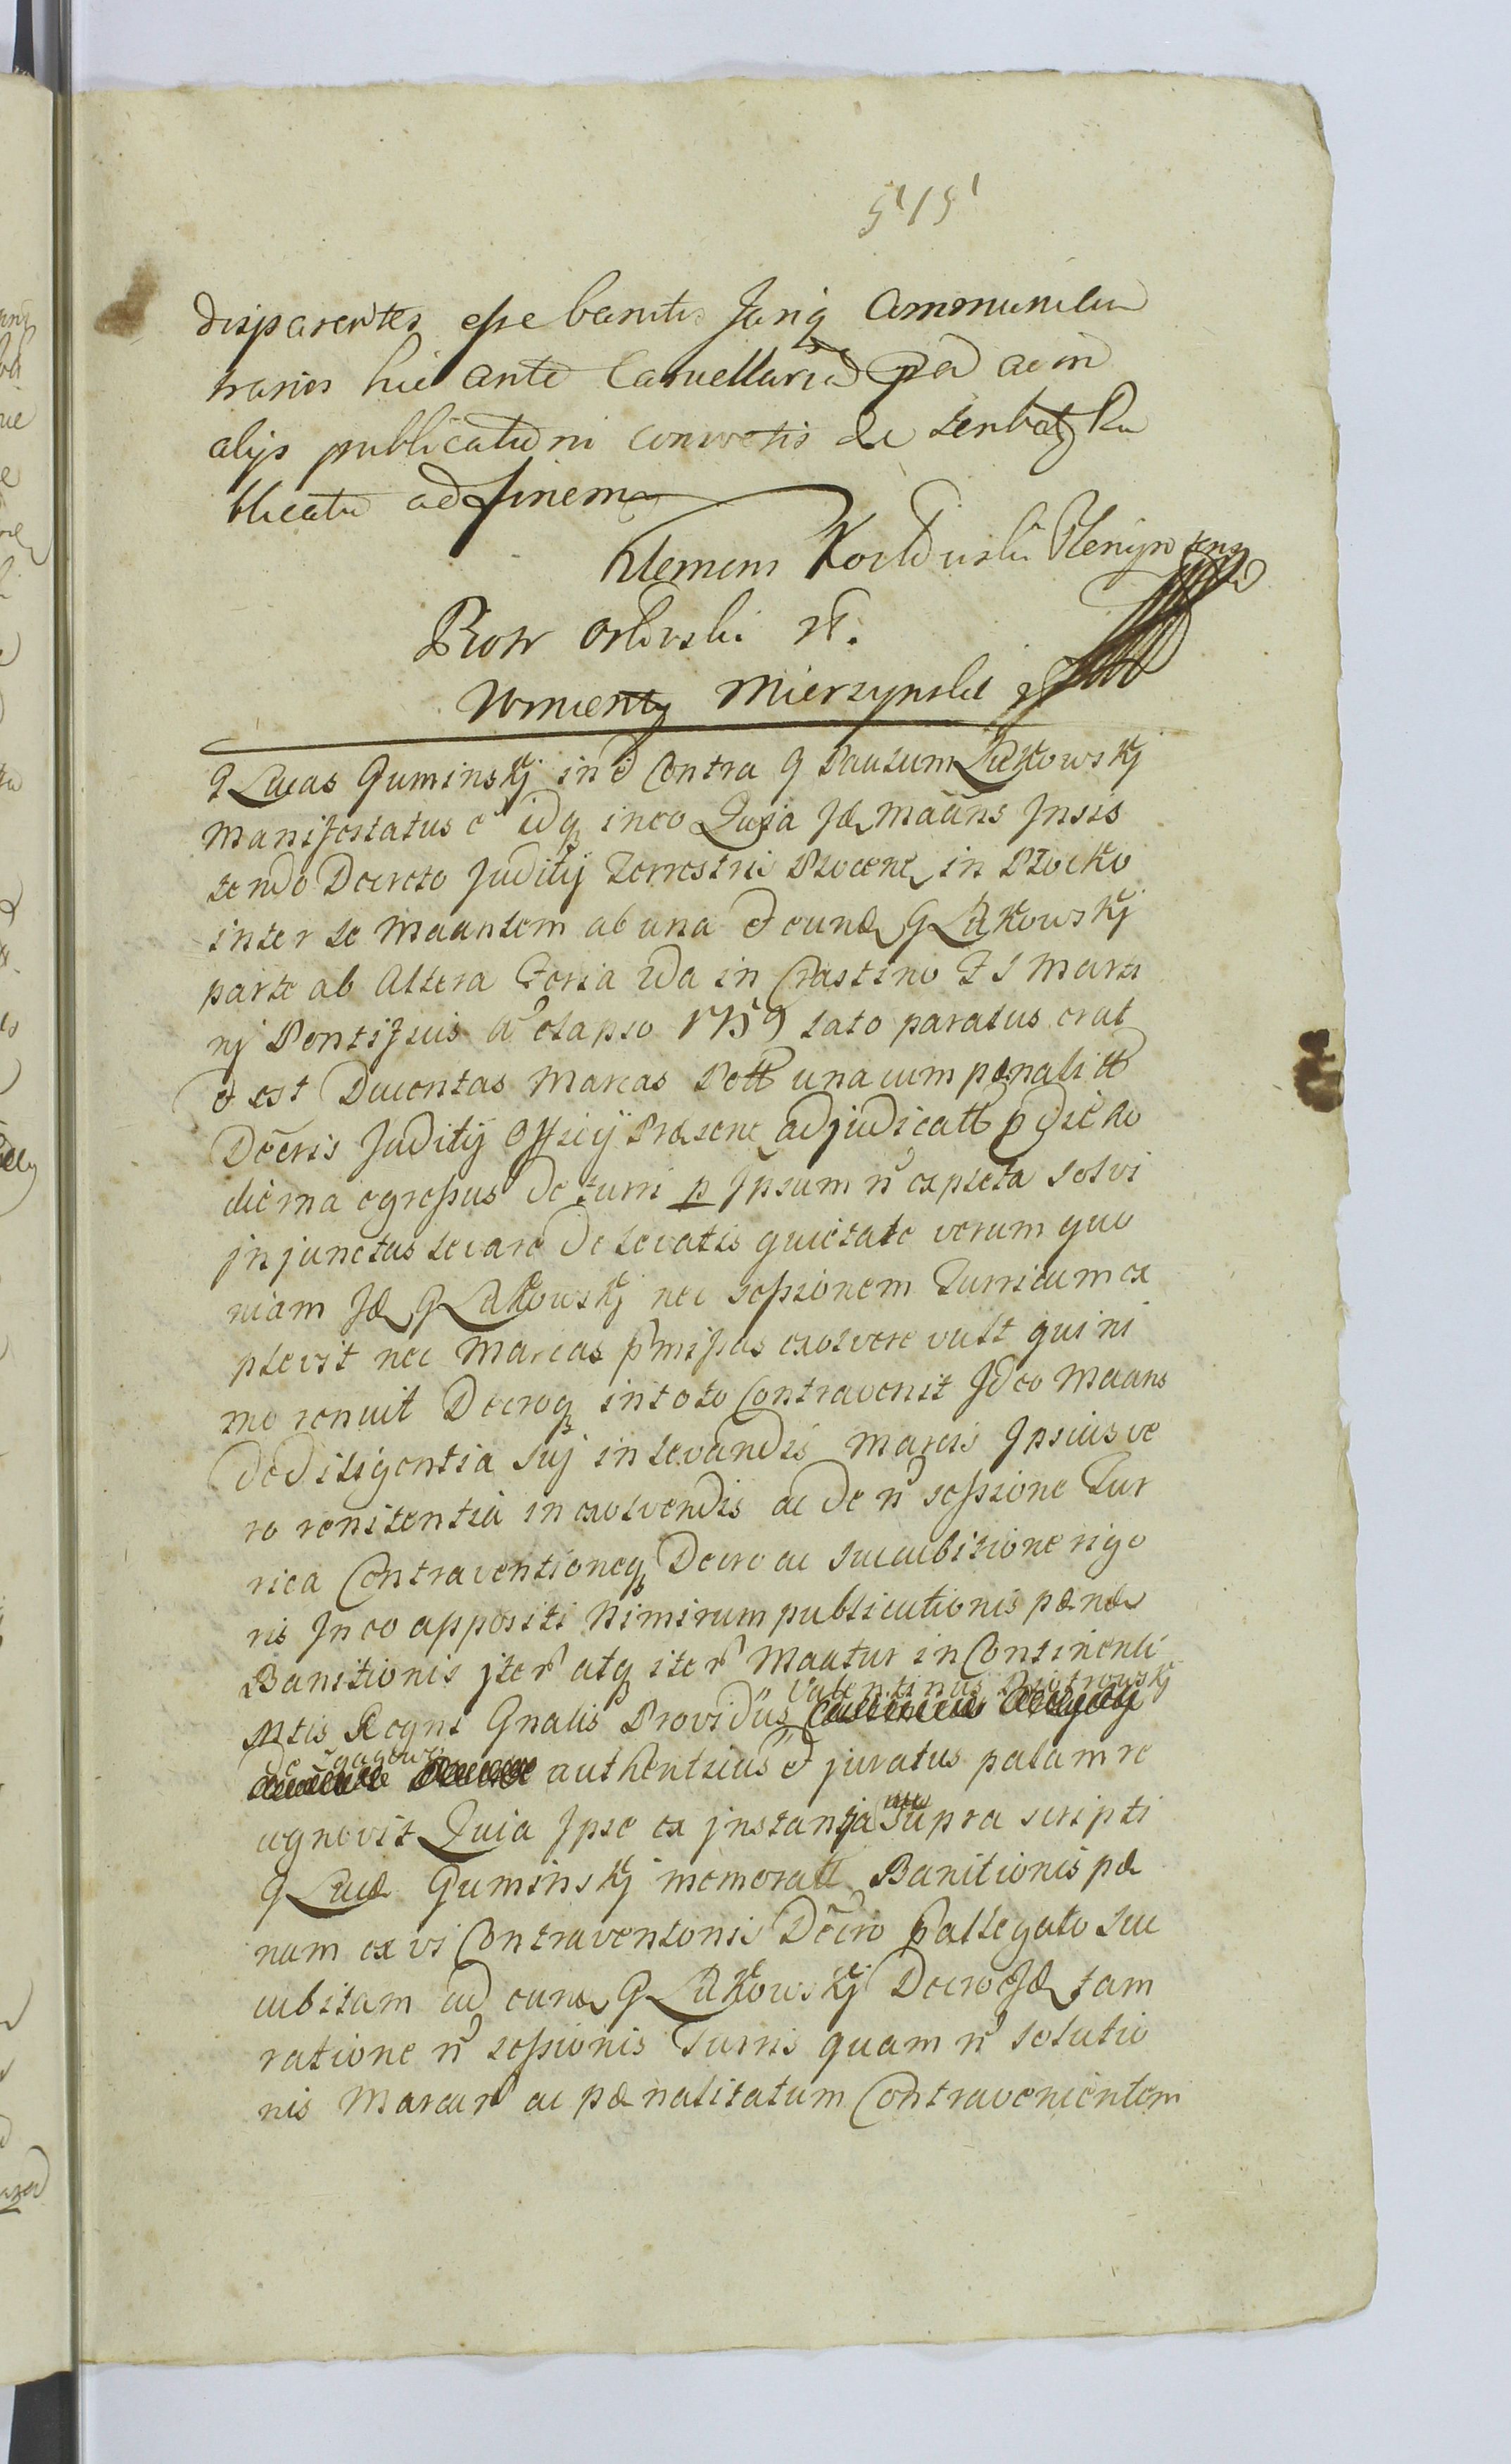 515
disparentes esse banitis Jang Communica
trarios hic ante Cancellaria pa ac in
alys publicationi consvetis de
blicatu ad finem
Klemens
Piotr Orlowski
Wincenty Mierzynski
G Lucas Guminskj in et Contra G Paulum Lukowskj
Manifestatus e idq ineo Quia Jd Maans Insis
tendo Decreto Juditij Terrestris Plocens in Plocko
inter se Maantem ab una et eund G Lukowskj
parte ab Altera Feria 2da in Crastino F S Marti
nj Pontifcis a elapso 1759 lato paratus erat
et est Ducentas Marcas Pett una cum penalitt
Decris Juditij Officij Prasene adjudicatt p die ho
dierna egressus de turri p Ipsum n expleta solvi
jnjunctas levare de levatis quietate verum quo
niam Jd G Lukowskj nec sessionem Turricum ex
plevit nec Marcas pmissas exolvere vult quini
mo renuit Decroq in toto Contravenit Ideo Maans
de diligentia suj in levandis Marcis Ipsius ve
ro renitentia in exolvendis ac de n sessione Tur
rica Contraventioneq Decro ac succubitione rigo
ris Ineo appositi Nimirum publicationis pænæ
Banitionis jter atq iter Maatur in Continenti
Mtis Regni Gnalis Providus Valentinus Piotrowskj
de authenticus et juratus palam re
cognovit Quia Ipse ex jnstantja Supra scripti
G Lucæ Guminskj memoratt Banitionis pæ
nam ex vi Contraventonis Decro pallegato suc
cubitam ad eund G Lukowskj Decro Jd tam
ratione n sessionis Turris quam n solutio
nis Marcar ac pænalitatum Contravenientem